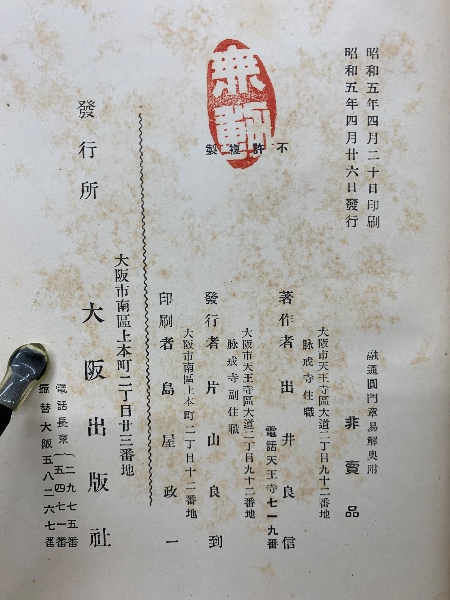 昭和五年四月二十日印刷
昭和五年四月廿六日發行
融通圓門章易解奧附
非賣品
不許複製
大阪市天王寺區大道二丁目九十二番地
脉戒寺住職
著作者 出井良信
電話天王寺七一九番
大阪市天王寺區大道二丁目九十二番地
脉戒寺副住職
發行者 片山良到
大阪市南區上本町二丁目十二番地
印刷者 島屋政一
大阪市南區上本町二丁目廿三番地
發行所 大阪出版社
電話長東(二九七五番
五四七一番
振替大阪五八二六七番